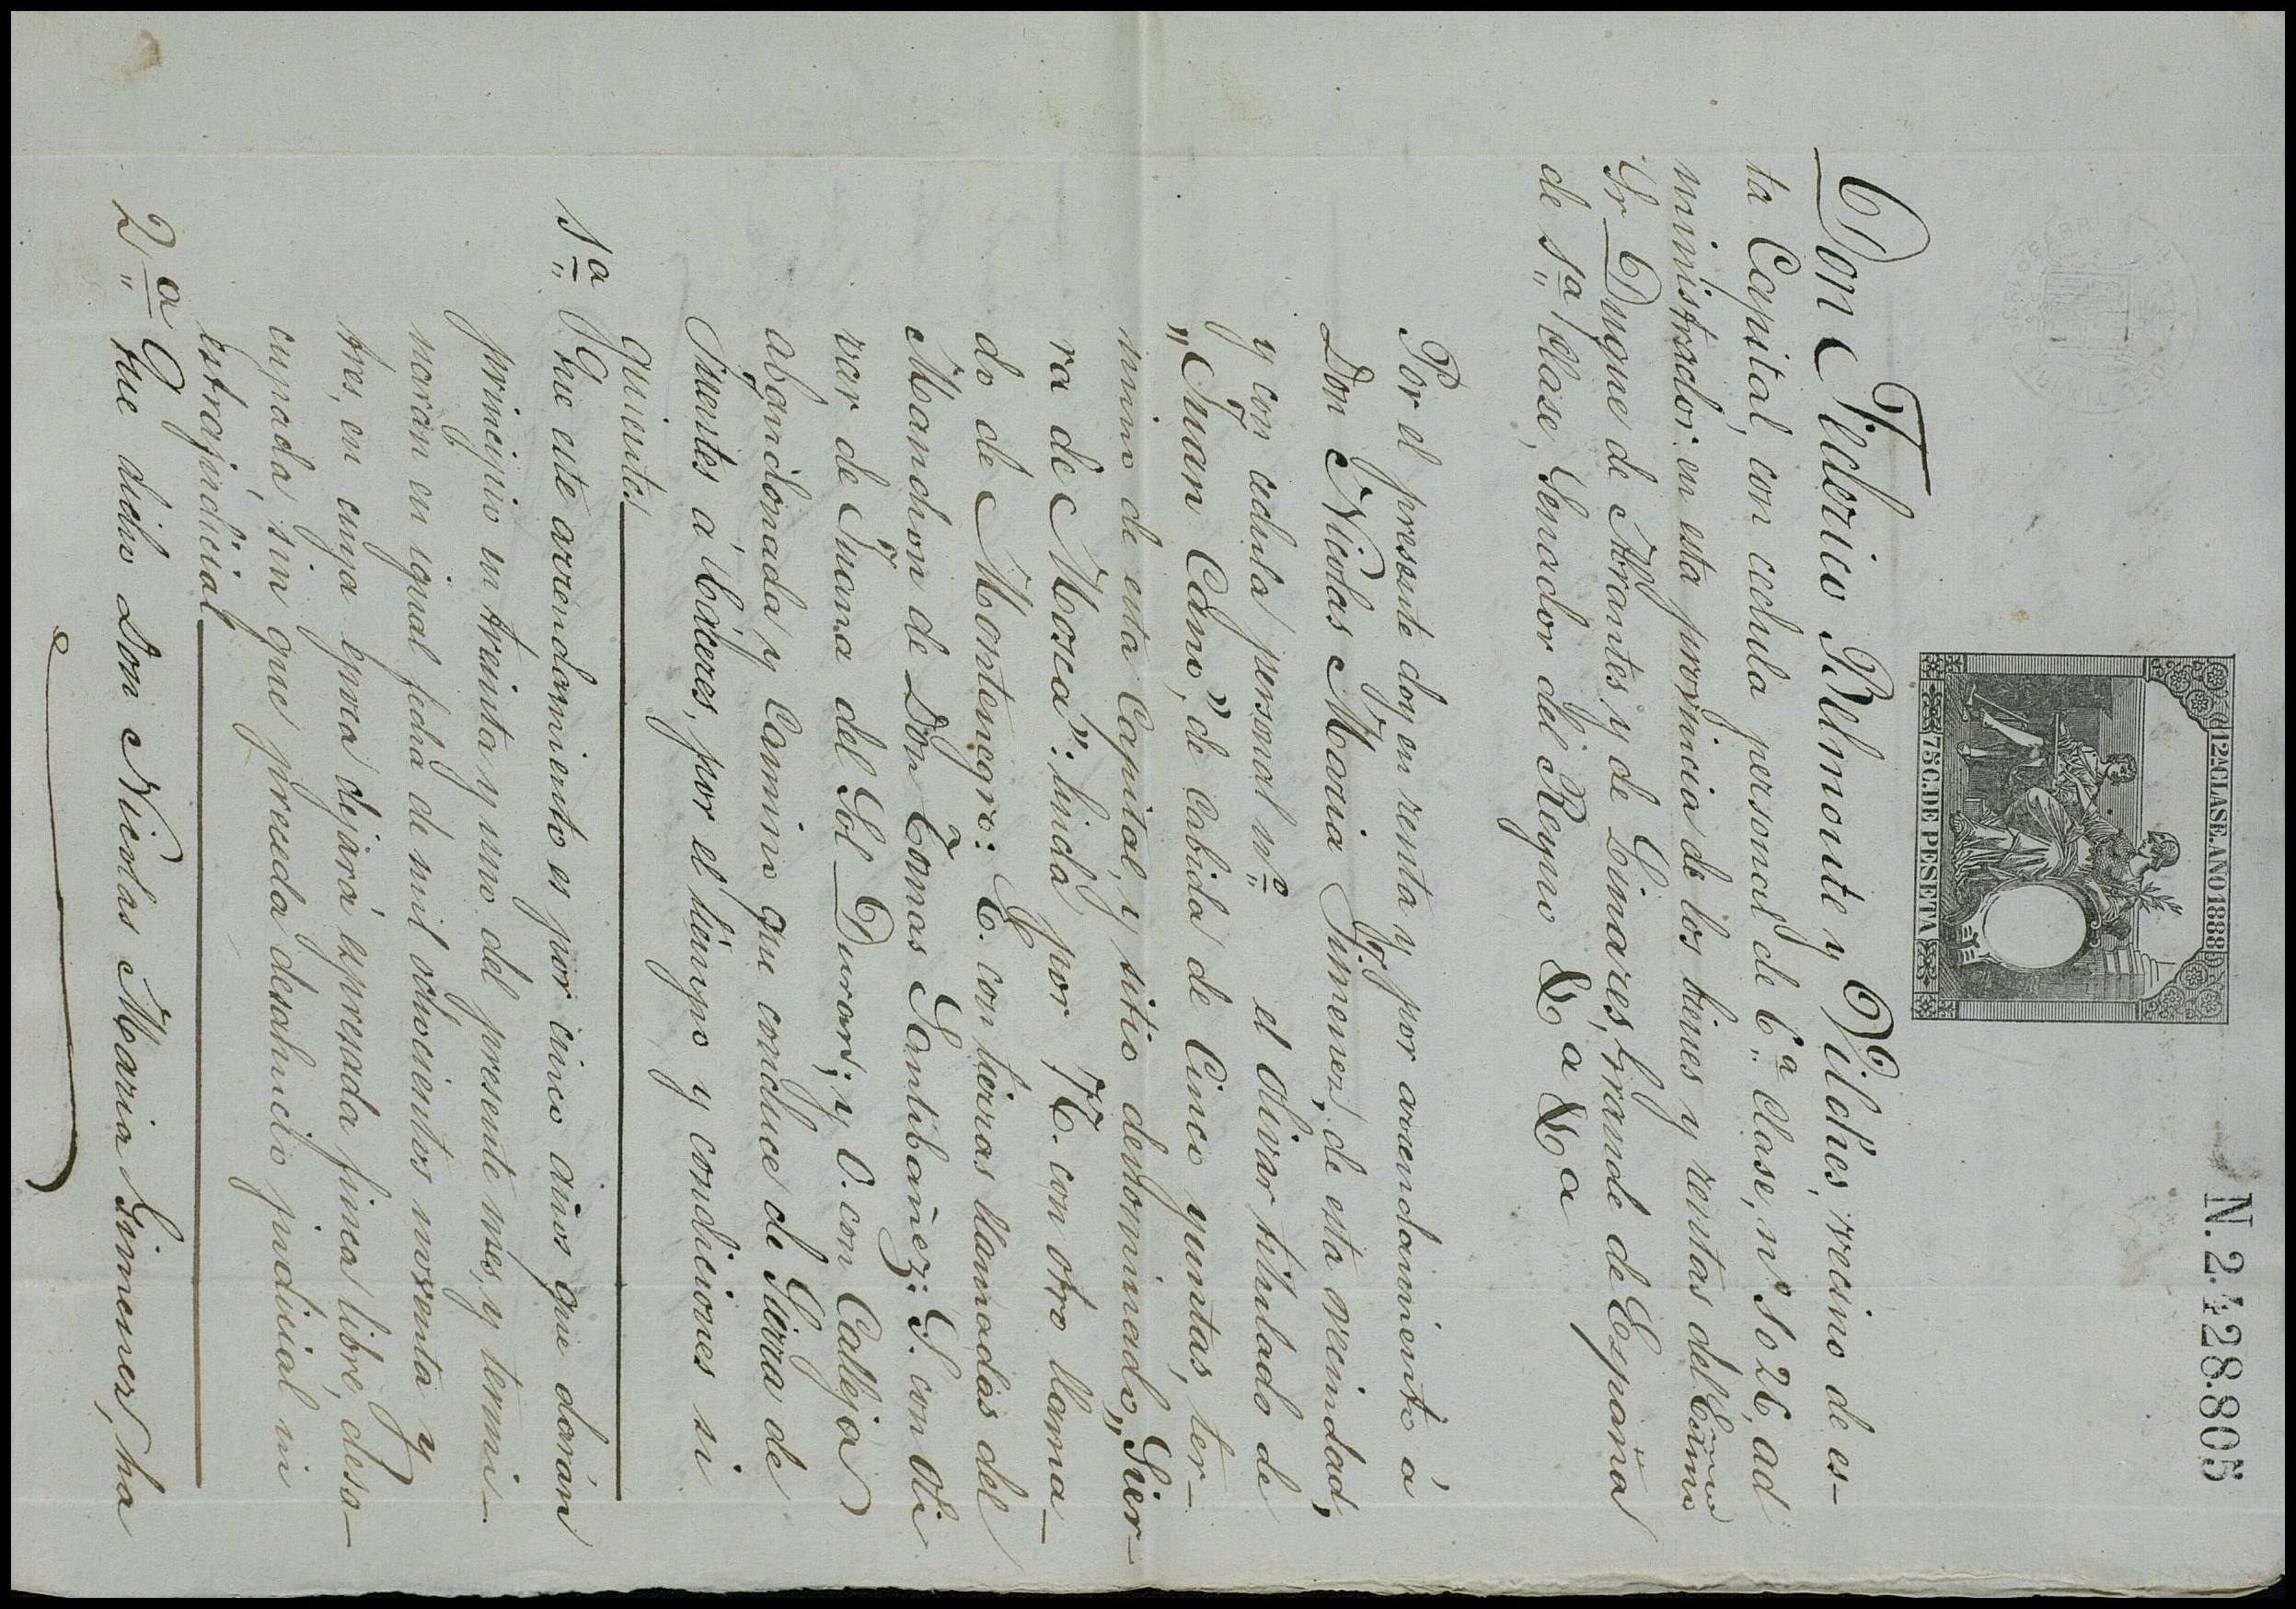 N. 2.428.805
12ª CLASE. AÑO 1888
75 C. DE PESETA
Don Federico Belmonte y Vildes, vecino de es-
ta Capital, con cedula personal de 6ª clase, nº 1026, ad
ministrador en esta provincia de los bienes y rentas del Exmo
Sr Duque de Abrantes y de Linares, Grande de España
de 1ª clase, Senador del Reyno &a &a
Por el presente doy en renta y por arrendamiento á
Don Nicolas Maria Jimenez, de esta vecindad,
y con cedula personal nº el olivar titulado de
„Juan Cano”, de cabida de Cinco yuntas, ter-
mino de esta Capital, y sitio denominado, „Sier-
ra de Mosca”: linda por N. con otro llama-
do de Montenegro: E. con tierras llamadas del
Mandron de Don Tomas Santibañez: S. con oli
var de Juana del Sol Duran; y O. con Calleja
abandonada y Camino que conduce de Sierra de
Fuentes á Cáceres, por el tiempo y condiciones si
guientes
1ª Que este arrendamiento es por cinco años que darán
principio en treinta y uno del presente mes, y termi-
narán en igual fecha de mil ochocientos noventa y
tres, en cuya epoca dejará espresada finca libre, deso-
cupada, sin que preceda desahucio judicial ni
estrajudicial
2ª Que dicho Don Nicolas Maria Gimenez, ha